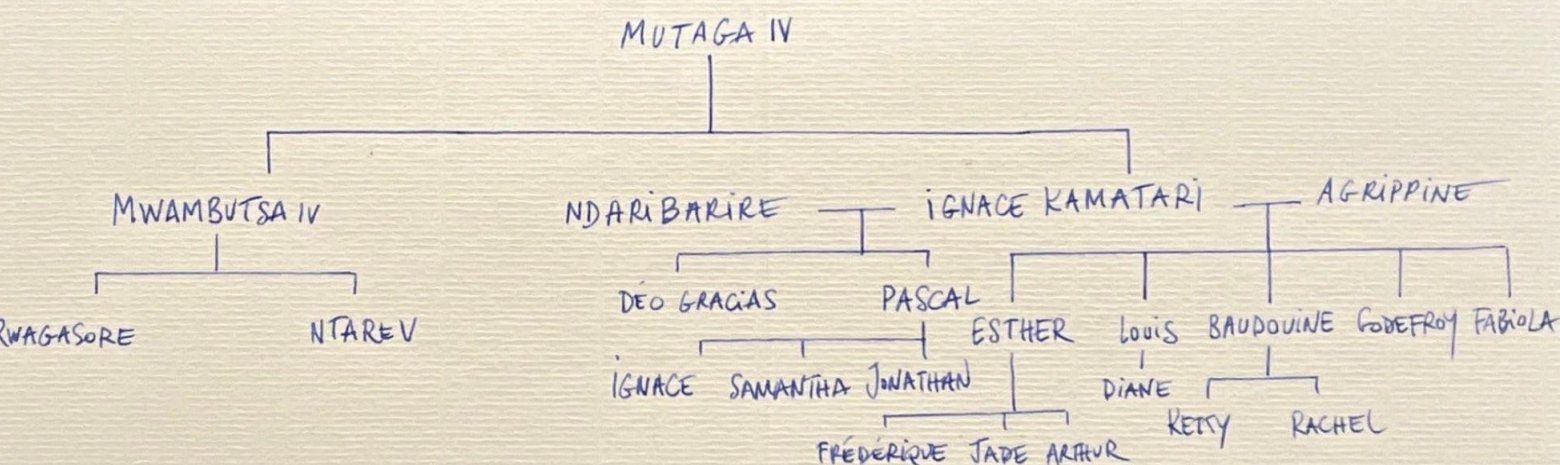 MUTAGA IV
MWAMBUTSA IV NDARIBARIRE IGNACE KAMATARI AGRIPPINE
RWAGASORE NTARE V DÉO GRACIAS PASCAL ESTHER LOUIS BAUDOUINE GODEFROY FABIOLA
IGNACE SAMANTHA JONATHAN DIANE
KETTY RACHEL
FRÉDÉRIQUE JADE ARTHUR